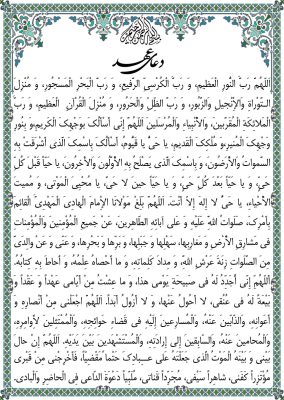 بسم الله الرحمن الرحیم
دعای عهد
اَللّهُمَّ رَبَّ النُّورِ الْعَظیمِ، وَ رَبَّ الْكُرْسِيِّ الرَّفیعِ، وَ رَبَّ الْبَحْرِ الْمَسْجُورِ، وَ مُنْزِلَ
التَّوْراةِ وَ الْإِنْجیلِ وَ الزَّبُورِ، وَ رَبَّ الظِّلِّ وَ الْحَرُورِ، وَ مُنْزِلَ الْقُرْآنِ الْعَظیمِ، وَ رَبَّ
الْمَلائِكَةِ الْمُقَرَّبینَ، وَ الْأَنْبِیاءِ وَ الْمُرْسَلینَ اَللّهُمَّ إِنّی أَسْأَلُكَ بِوَجْهِكَ الْكَریمِ، وَ بِنُورِ
وَجْهِكَ الْمُنیرِ، وَ مُلْكِكَ الْقَدیمِ، یا حَيُّ یا قَیُّومُ، أَسْأَلُكَ بِاسْمِكَ الَّذی أَشْرَقَتْ بِهِ
السَّماواتُ وَ الْأَرَضُونَ، وَ بِاسْمِكَ الَّذی یَصْلَحُ بِهِ الْأَوَّلُونَ وَ الْآخِرُونَ، یا حَیّاً قَبْلَ كُلِّ
حَيٍّ، وَ یا حَیّاً بَعْدَ كُلِّ حَيٍّ، وَ یا حَیّاً حینَ لا حَيَّ، یا مُحْیِيَ الْمَوْتی، وَ مُمیتَ
الْأَحْیاءِ، یا حَيُّ لا إِلهَ إِلّا أَنْتَ. اَللّهُمَّ بَلِّغْ مَوْلانَا الْإِمامَ الْهادِيَ الْمَهْدِيَّ الْقائِمَ
بِأَمْرِكَ، صَلَواتُ اللهِ عَلَیْهِ وَ عَلی آبائِهِ الطّاهِرینَ، عَنْ جَمیعِ الْمُؤْمِنینَ وَ الْمُؤْمِناتِ
فی مَشارِقِ الْأَرْضِ وَ مَغارِبِها، سَهْلِها وَ جَبَلِها، وَ بَرِّها وَ بَحْرِها، وَ عَنّی وَ عَنْ والِدَيَّ
مِنَ الصَّلَواتِ زِنَةَ عَرْشِ اللهِ، وَ مِدادَ كَلِماتِهِ، وَ ما أَحْصاهُ عِلْمُهُ، وَ أَحاطَ بِهِ كِتابُهُ.
اَللّهُمَّ إِنّی أُجَدِّدُ لَهُ فی صَبیحَةِ یَوْمی هذا، وَ ما عِشْتُ مِنْ أَیّامی عَهْداً وَ عَقْداً وَ
بَیْعَةً لَهُ فی عُنُقی، لا أَحُولُ عَنْها، وَ لا أَزُولُ أَبَداً. اَللّهُمَّ اجْعَلْنی مِنْ أَنْصارِهِ وَ
أَعْوانِهِ، وَ الذّابّینَ عَنْهُ، وَ الْمُسارِعینَ إِلَیْهِ فی قَضاءِ حَوائِجِهِ، وَ الْمُمْتَثِلینَ لِأَوامِرِهِ،
وَ الْمُحامینَ عَنْهُ، وَ السّابِقینَ إِلی إِرادَتِهِ، وَ الْمُسْتَشْهَدینَ بَیْنَ یَدَیْهِ. اَللّهُمَّ إِنْ حالَ
بَیْنی وَ بَیْنَهُ الْمَوْتُ الَّذی جَعَلْتَهُ عَلی عِبادِكَ حَتْماً مَقْضِیّاً، فَأَخْرِجْنی مِنْ قَبْری
مُؤْتَزِراً كَفَنی، شاهِراً سَیْفی، مُجَرِّداً قَناتی، مُلَبِّیاً دَعْوَةَ الدّاعی فِی الْحاضِرِ وَ الْبادی.